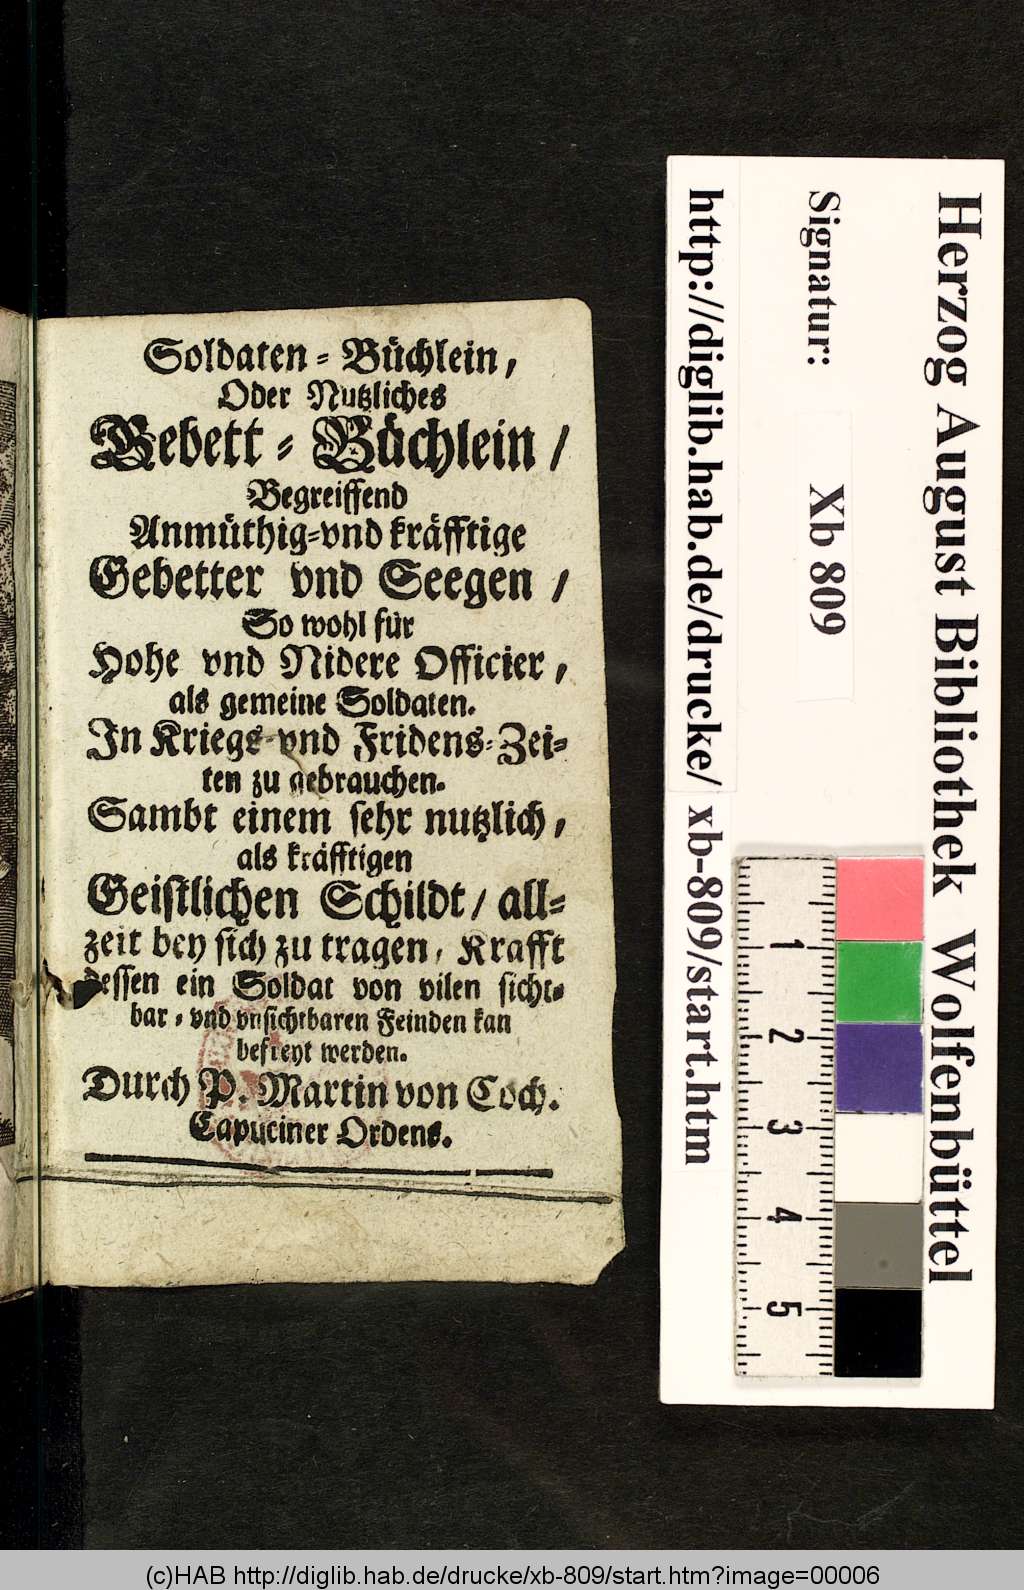 Soldaten-Büchlein,
Oder Nutzliches
Gebett-Büchlein /
Begreiffend
Anmüthig-vnd kräfftige
Gebetter vnd Seegen /
So wohl für
Hohe vnd Nidere Officier,
als gemeine Soldaten.
In Kriegs-vnd Fridens-Zei-
ten zu gebrauchen.
Sambt einem sehr nutzlich,
als kräfftigen
Geistlichen Schildt / all-
zeit bey sich zu tragen, Krafft
dessen ein Soldat von vilen sicht-
bar-vnd vnsichtbaren Feinden kan
befreyt werden.
Durch P. Martin von Coch.
Capuciner Ordens.
Herzog August Bibliothek Wolfenbüttel
Signatur: Xb 809
http://diglib.hab.de/drucke/ xb-809/start.htm
1
2
3
4
5
(c)HAB http://diglib.hab.de/drucke/xb-809/start.htm?image=00006